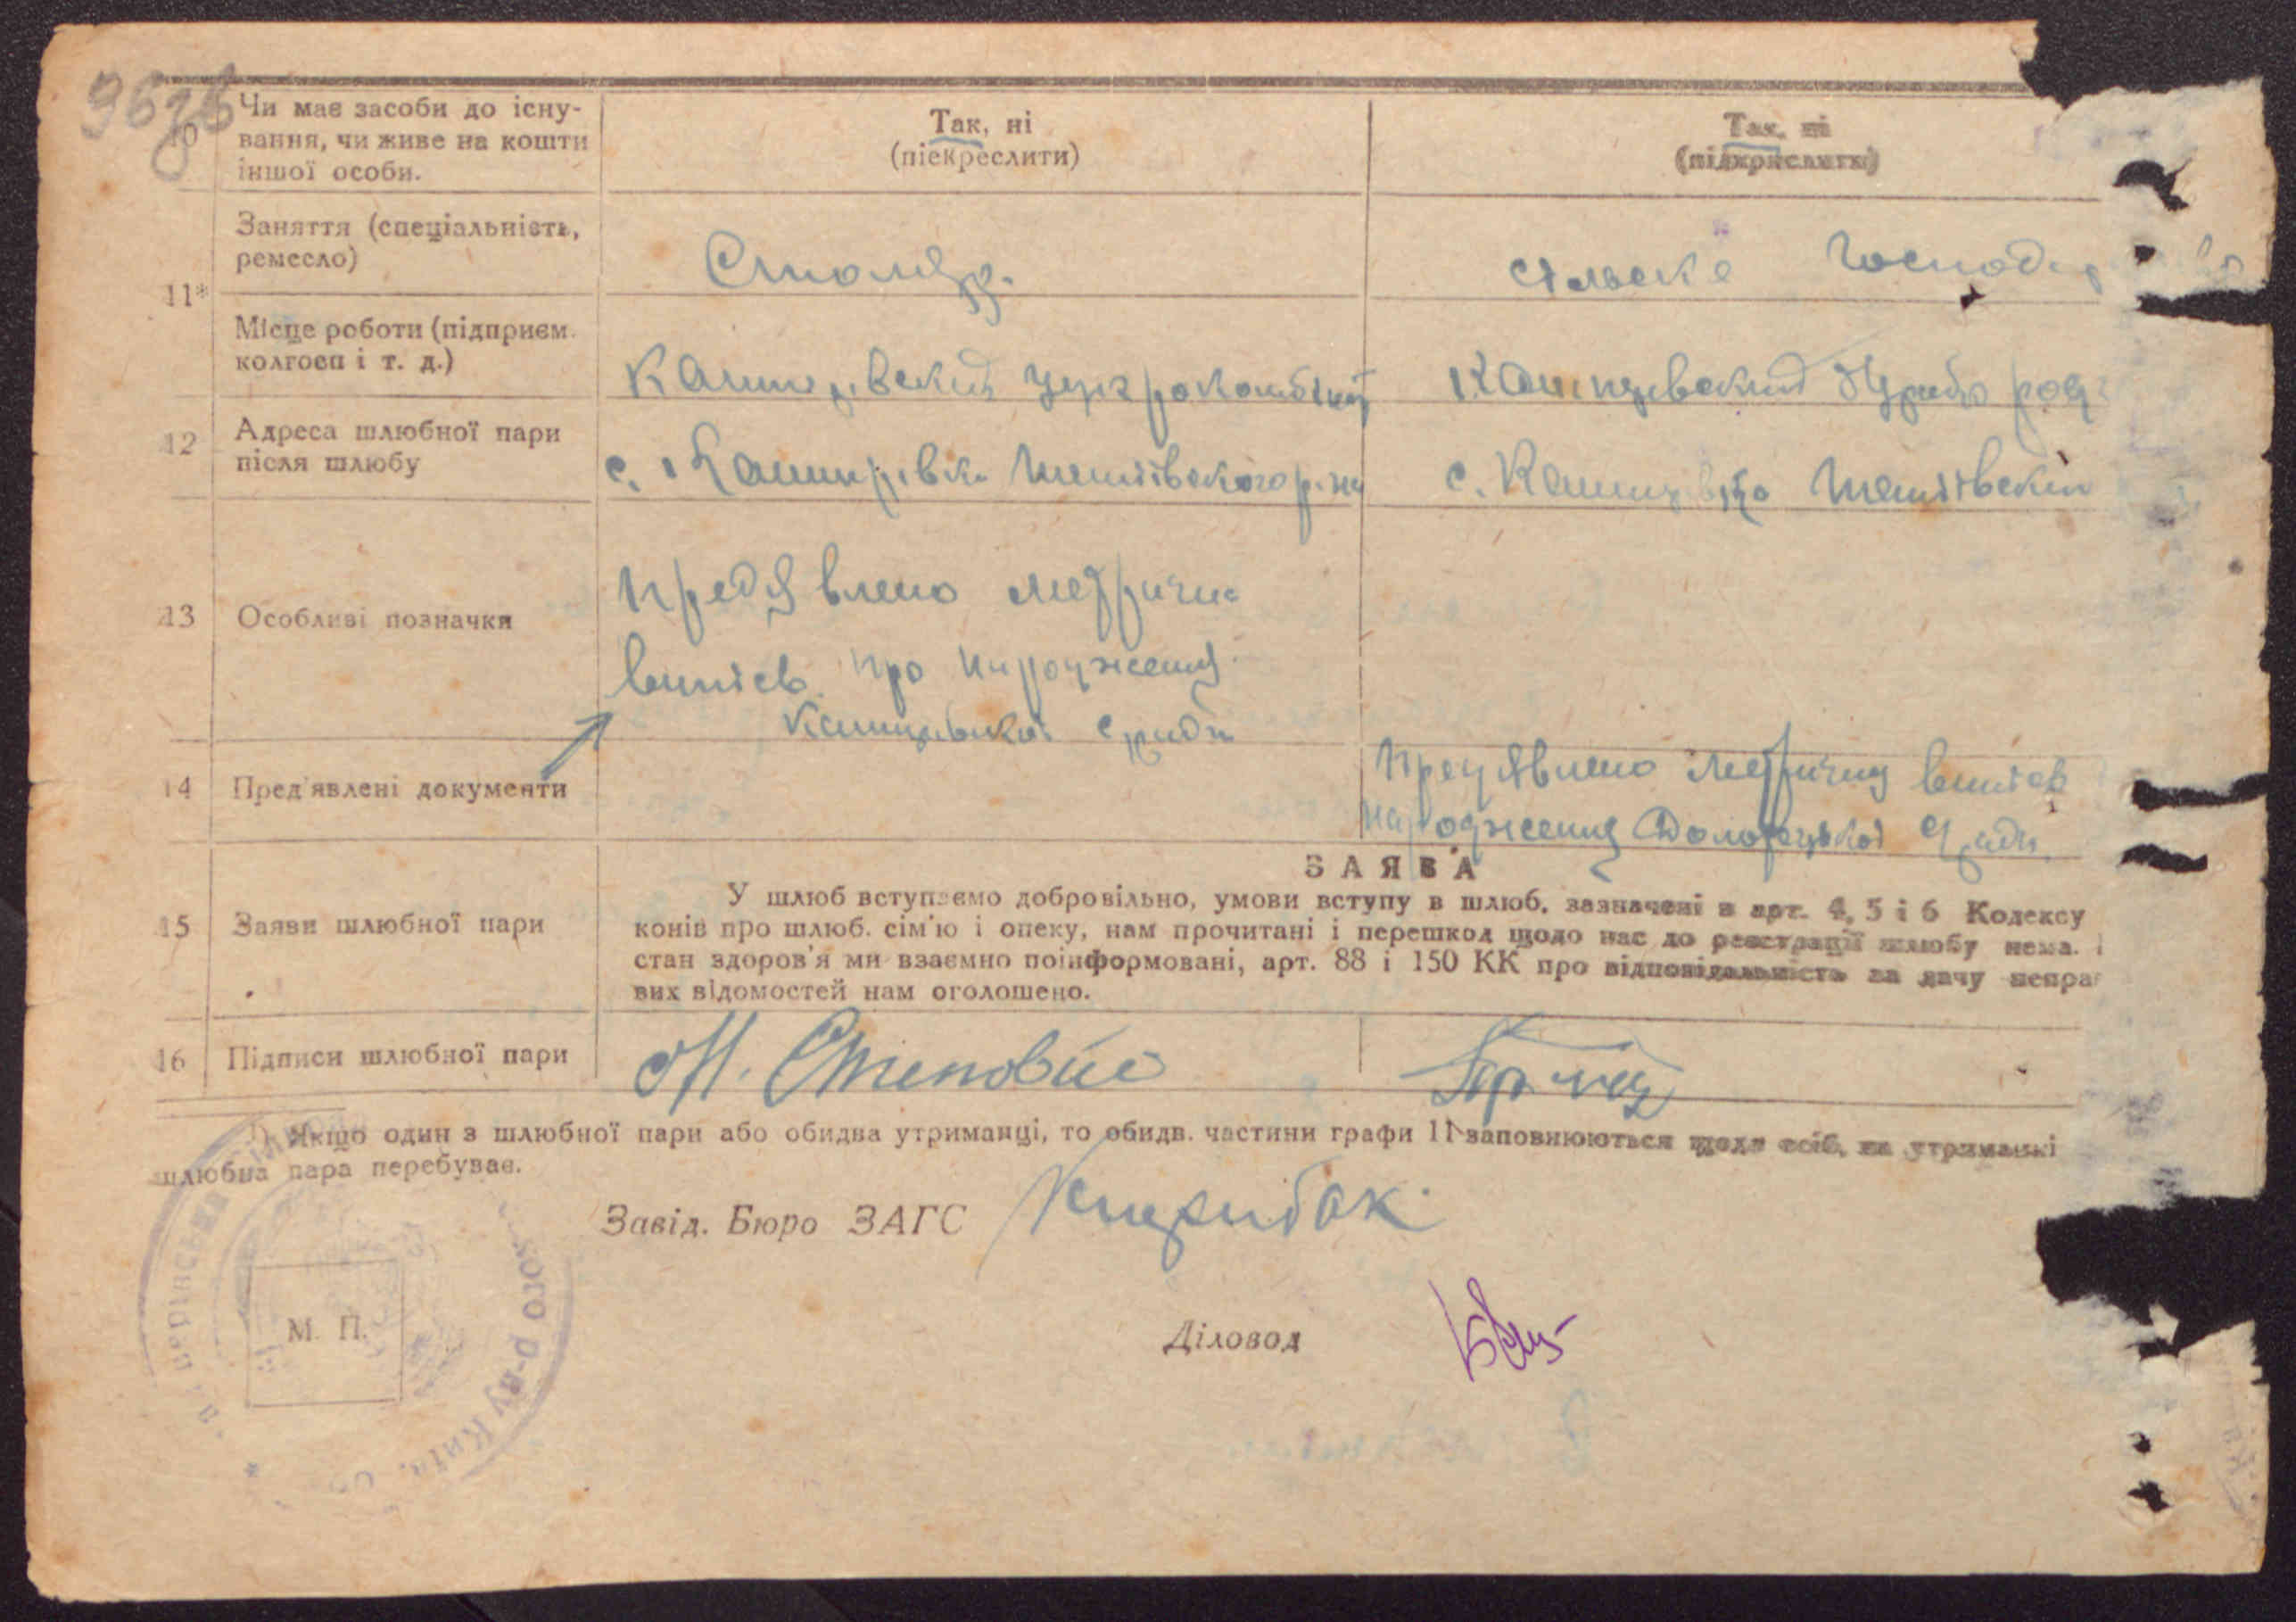 Чи має засоби до існу-
вання, чи живе на кошти
іншої особи.
10
Так, ні
(піекреслити)
Так, ні
(підкрислити)
11*
Заняття (спеціальність,
ремесло)
Столяр.
сільске господар
Місце роботи (підприєм.
колгосп і т. д.)
Кашперівский цукрокомбінат
Кашперівский
12
Адреса шлюбної пари
після шлюбу
с. Кашперівка Тетіївского р-ну
с. Кашперівка Тетіївский
13
Особливі позначки
Предявлено метричне
про народження
14
Пред'явлені документи
Предявлено метричну
народження
ЗАЯВА
15
Заяви шлюбної пари
У шлюб вступаємо добровільно, умови вступу в шлюб, зазначені в арт. 4, 5 і 6 Кодексу
конів про шлюб. сім'ю і опеку, нам прочитані і перешкод щодо нас до реєстрації шлюбу нема.
стан здоров'я ми взаємно поінформовані, арт. 88 і 150 КК про відповідальність за дачу неправ
вих відомостей нам оголошено.
16
Підписи шлюбної пари
М. Степовий
Якщо один з шлюбної пари або обидва утриманці, то обидв. частини графи 11 заповнюються щодо осіб, на утриманкі
шлюбна пара перебуває.
Завід. Бюро ЗАГС
М. П.
Діловод
ого р-ну Київ.